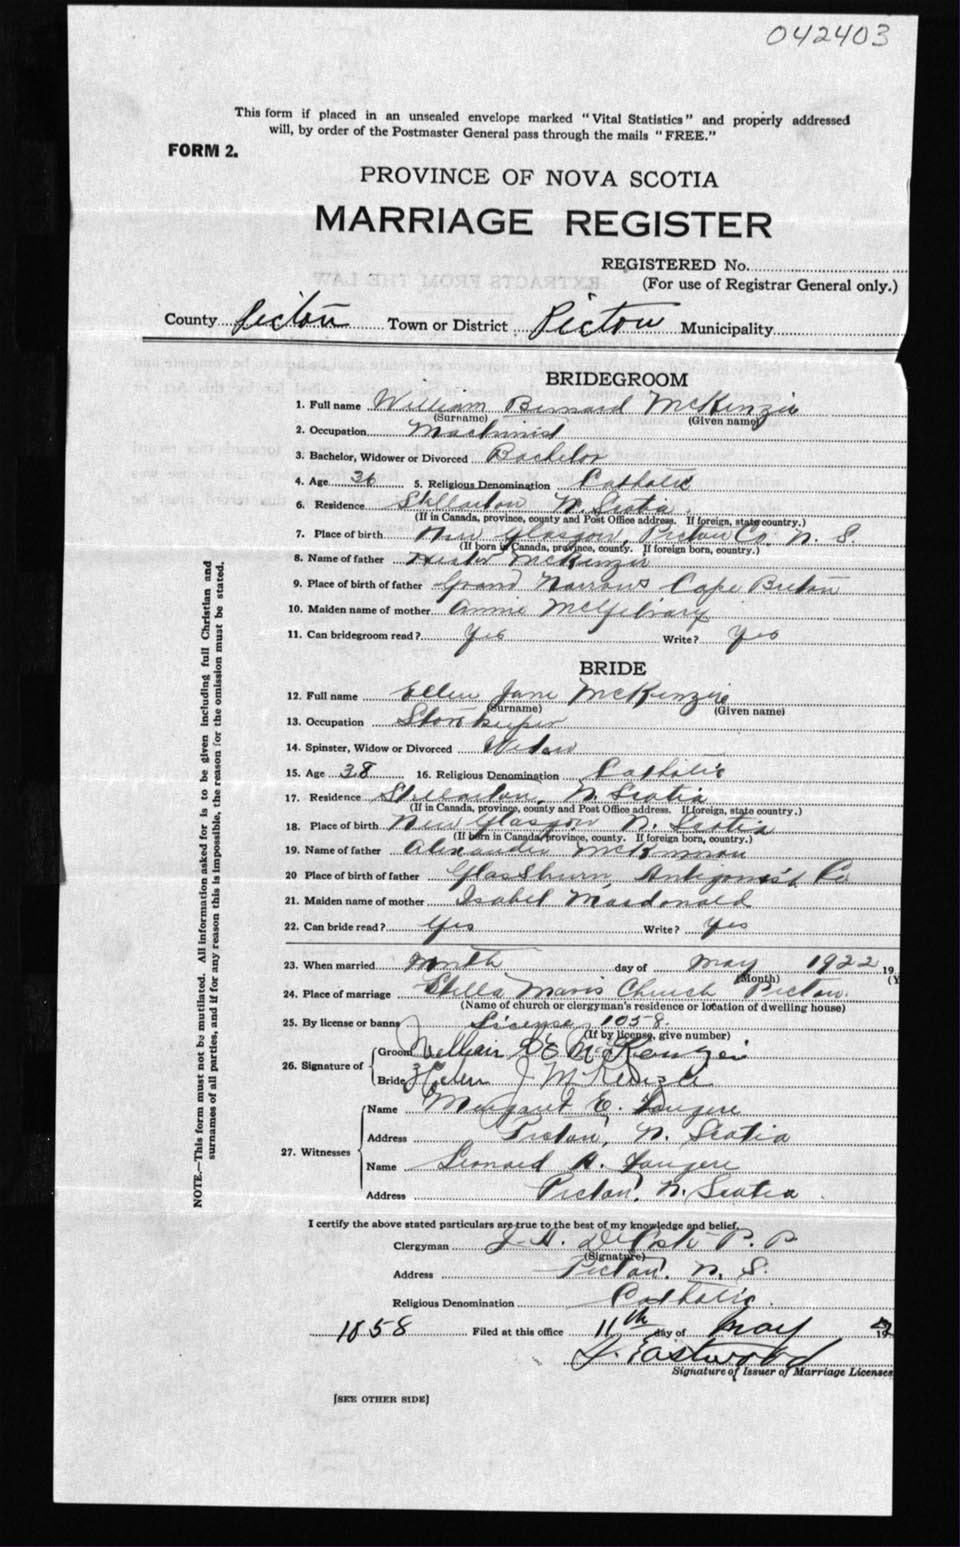 042403
This form if placed in an unsealed envelope marked "Vital Statistics" and properly addressed
will, by order of the Postmaster General pass through the mails "FREE."
FORM 2.
PROVINCE OF NOVA SCOTIA
MARRIAGE REGISTER
REGISTERED No.
(For use of Registrar General only.)
County Pictou Town or District Pictou Municipality
BRIDEGROOM
1. Full name William Bernard McKenzie
(Surname) (Given name)
2. Occupation Machinist
3. Bachelor, Widower or Divorced Bachelor
4. Age 36 5. Religious Denomination Catholic
6. Residence Stellarton N. Scotia.
(If in Canada, province, county and Post Office address. If foreign, state country.)
7. Place of birth New Glasgow, Pictou Co. N. S.
(If born in Canada, province, county. If foreign born, country.)
8. Name of father McKenzie
9. Place of birth of father Grand Narrows Cape Breton
10. Maiden name of mother Annie McGilvary
11. Can bridegroom read? Yes Write? Yes
BRIDE
12. Full name Ellen Jane McKenzie
(Surname) (Given name)
13. Occupation Storekeeper
14. Spinster, Widow or Divorced Widow
15. Age 38 16. Religious Denomination Catholic
17. Residence Stellarton, N. Scotia
(If in Canada, province, county and Post Office address. If foreign, state country.)
18. Place of birth New Glasgow N. Scotia
(If born in Canada, province, county. If foreign born, country.)
19. Name of father Alexander McKinnon
20 Place of birth of father Glassburn, Antigonish Co.
21. Maiden name of mother Isabel Macdonald
22. Can bride read? Yes Write? Yes
23. When married ninth day of May 1922 19
(Month) (Y
24. Place of marriage Stella Maris Church Pictou.
(Name of church or clergyman's residence or location of dwelling house)
25. By license or banns License 1058.
(If by license, give number)
26. Signature of
Groom William B McKenzie
Bride Helen J McKenzie
27. Witnesses
Name Margaret E. Fougere
Address Pictou, N. Scotia
Name Leonard H. Fougere
Address Pictou, N. Scotia
I certify the above stated particulars are true to the best of my knowledge and belief,
Clergyman J. D. P. P.
(Signature)
Address Pictou, N. S.
Religious Denomination Catholic.
1058 Filed at this office 11th day of May 19
J. Eastwood
Signature of Issuer of Marriage Licenses
[SEE OTHER SIDE]
NOTE.—This form must not be mutilated. All information asked for is to be given including full Christian and
surnames of all parties, and if for any reason this is impossible, the reason for the omission must be stated.